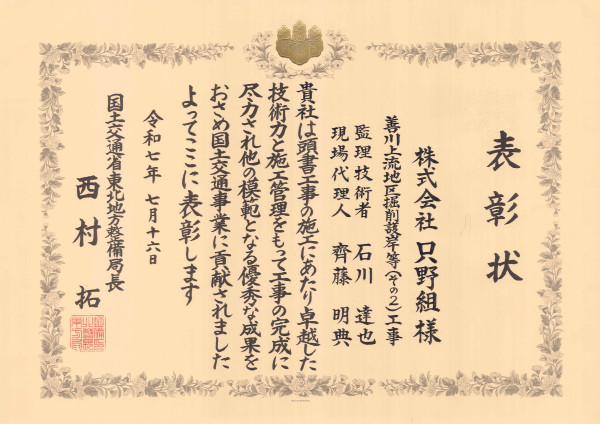 表彰状
株式会社 只野組様
善川上流地区掘削護岸等(その2)工事
監理技術者 石川 達也
現場代理人 齊藤 明典
貴社は頭書工事の施工にあたり卓越した
技術力と施工管理をもって工事の完成に
尽力され他の模範となる優秀な成果を
おさめ国土交通事業に貢献されました
よってここに表彰します
令和七年 七月十六日
国土交通省東北地方整備局長
西村 拓